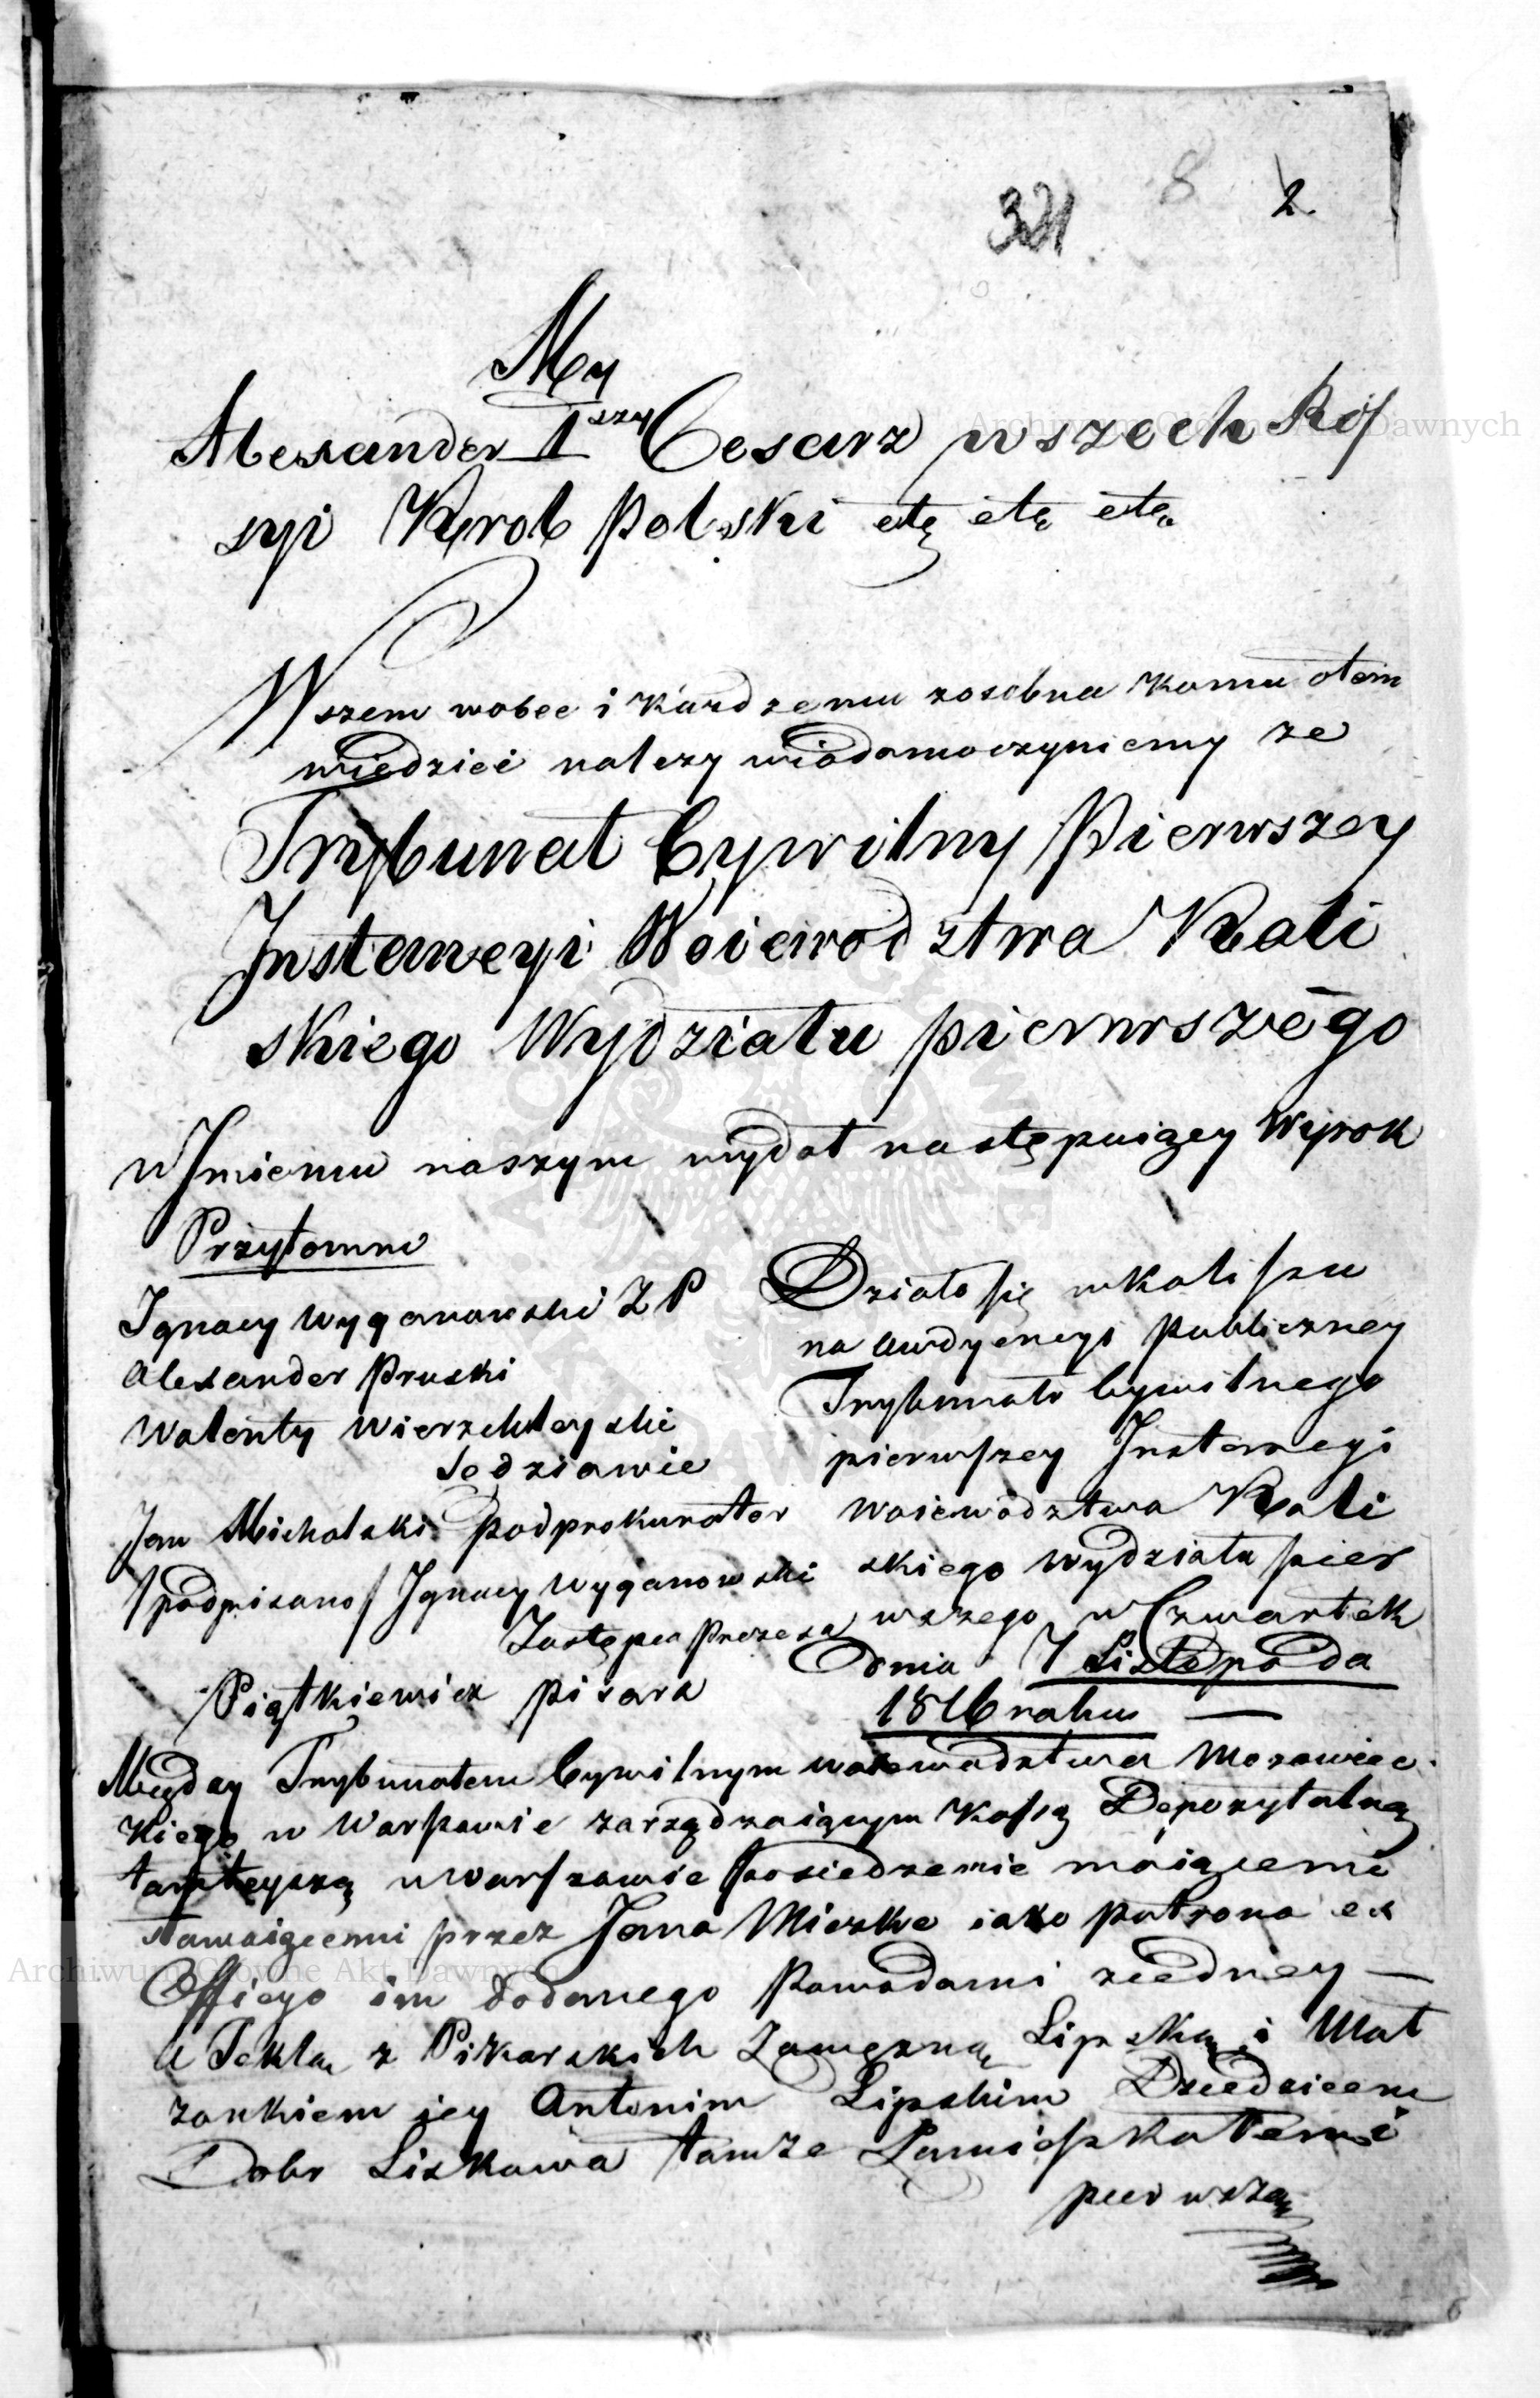 321. 8 2.
My
Alexander I szy Cesarz wszech Ros
syi Krol Polski etc etc etc
Wszem wobec i każdzemu zosobna komu otem
wiedzieć nalezy wiadomo czyniemy ze
Trybunał Cywilny Pierwszey
Instancyi Woiewodztwa Kali
skiego Wydziału pierwszego
w Jmieniu naszym wydał następuiący Wyrok
Przytomni
Ignacy Wyganowski Z P
Alexander Pruski
Walenty Wierzchleyski
Sędziowie
Jan Michalski Podprokurator
/podpisano/ Ignacy Wyganowski
Zastępca Prezesa
Piątkiewicz pisarz
Działo się w Kaliszu
na audyencyi publiczney
Trybunału Cywilnego
pierwszey Instancyi
Woiewodztwa Kali
skiego Wydziału pier
wszego w Czwartek
dnia 7 Listopada
1816 roku —
Między Trybunałem Cywilnym woiewodztwa Mazowiec
kiego w Warszawie zarządzaiącym Kassą Depozytalną
tamteyszą w Warszawie posiedzenie maiącemi
stawaiącemi przez Jana Mieszke iako patrona ex
Officyo im dodanego Powodami zjedney —
a Teklą z Pikarskich Zamężną Lipską i Mał
zonkiem jey Antonim Lipskim Dziedzicem
Dobr Liskowa tamże Zamieszkałemi
pierwszą
6
Archiwum Główne Akt Dawnych
Archiwum Główne Akt Dawnych